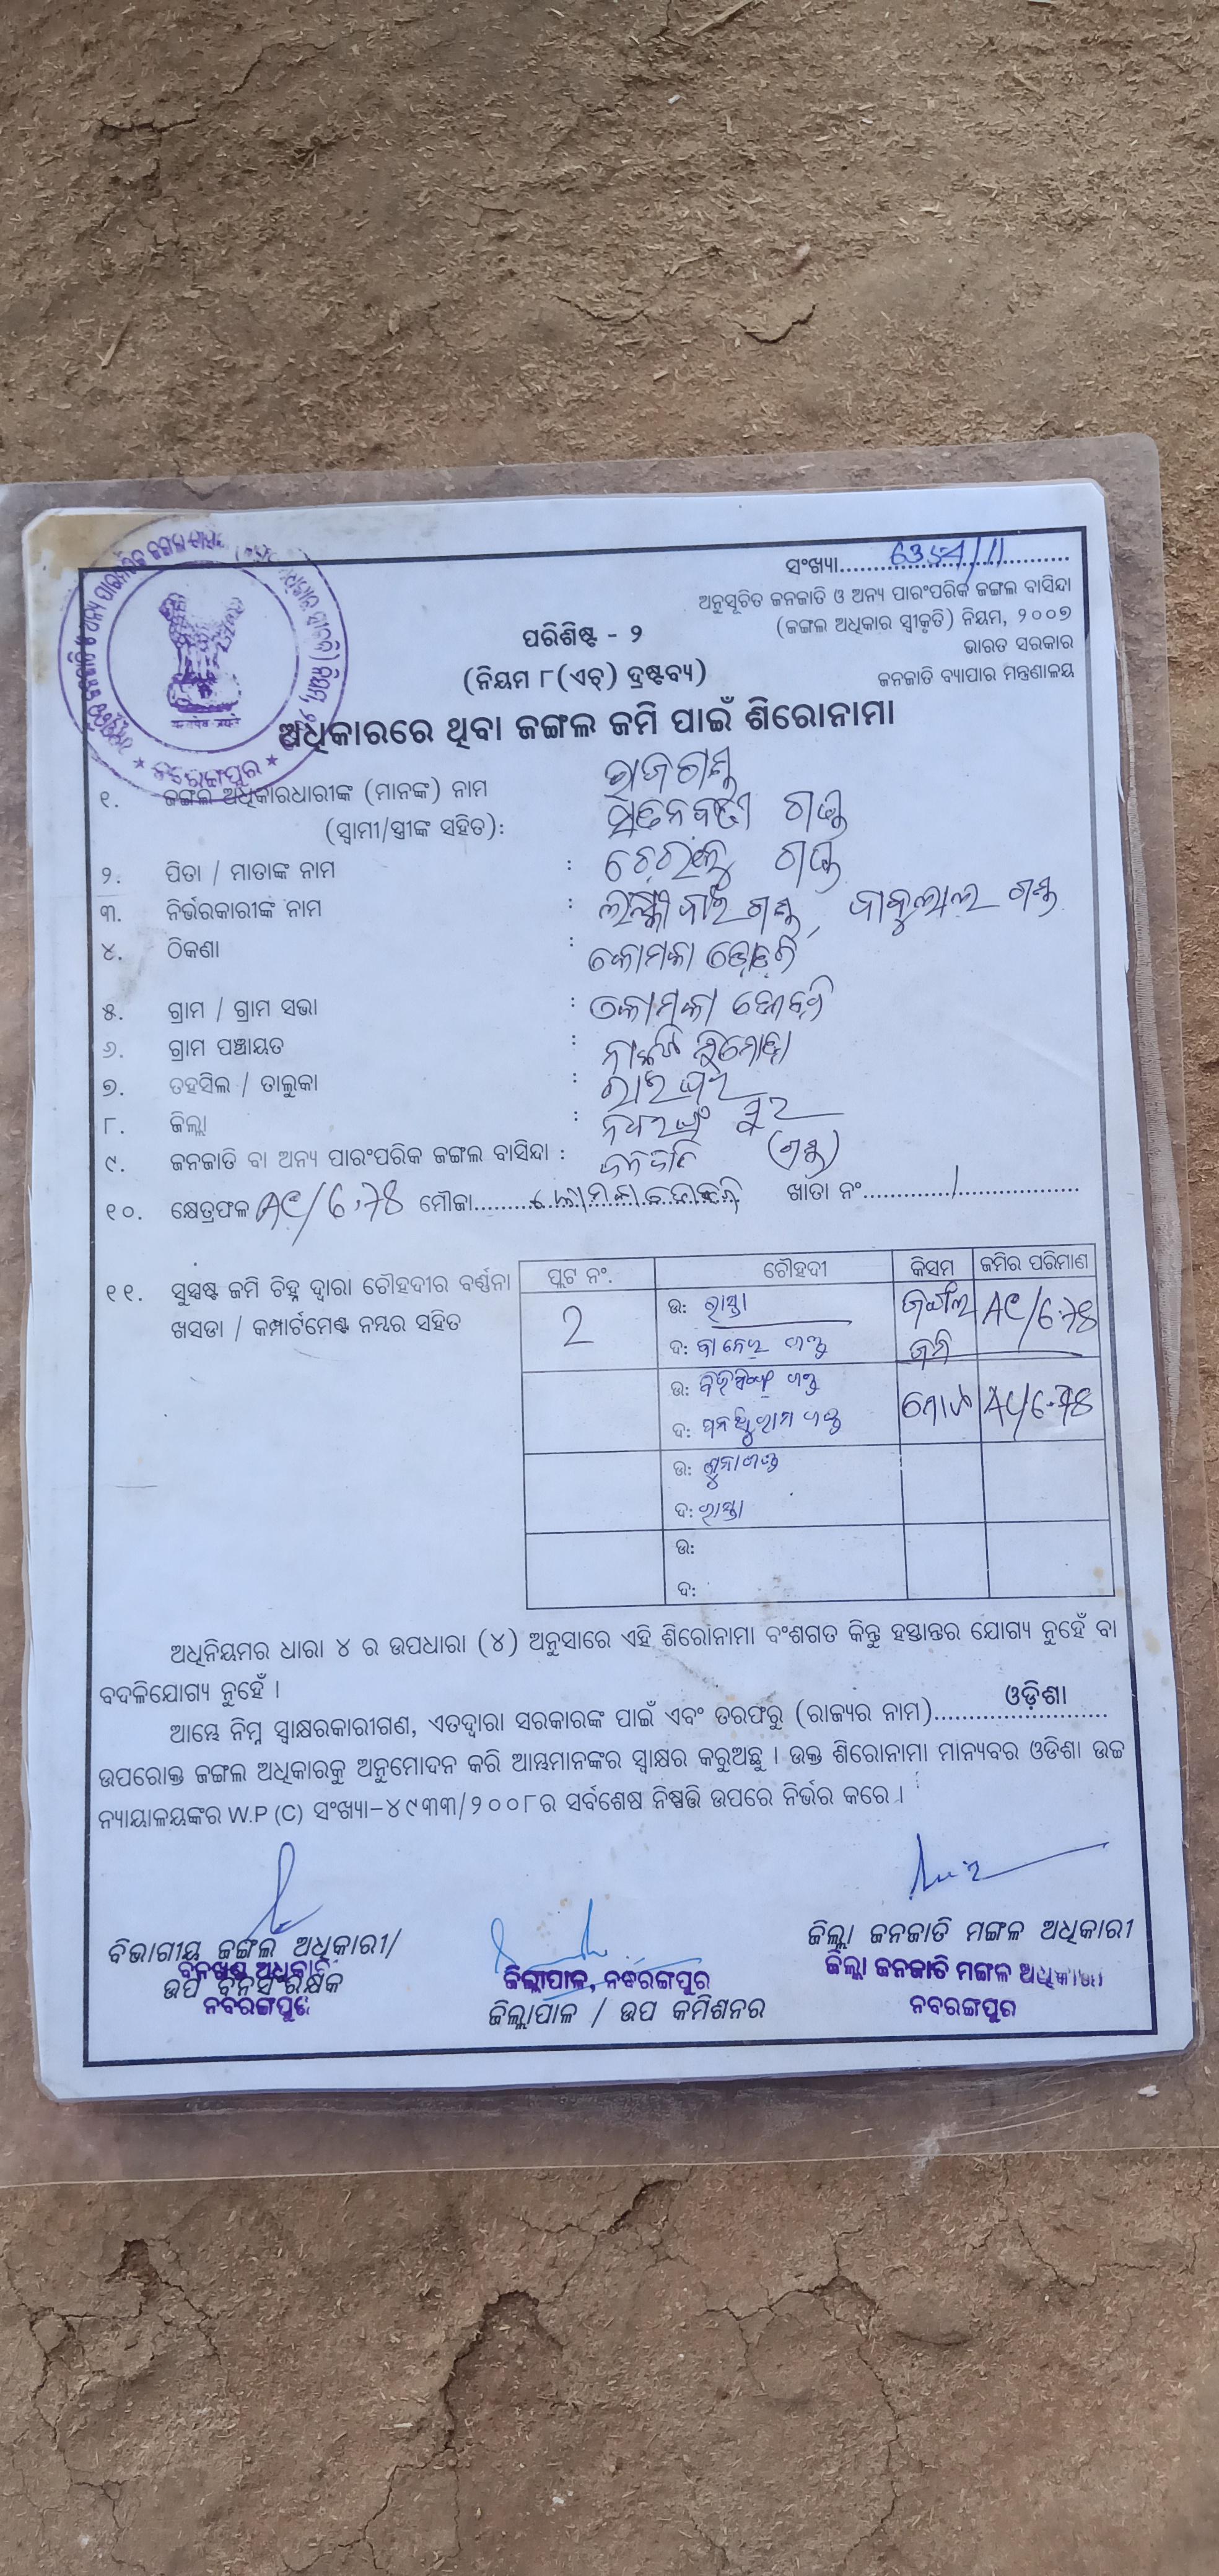 ସଂଖ୍ୟା....................................
ଅନୁସୂଚିତ ଜନଜାତି ଓ ଅନ୍ୟ ପାରଂପରିକ ଜଙ୍ଗଲ ବାସିନ୍ଦା
(ଜଙ୍ଗଲ ଅଧିକାର ସ୍ୱୀକୃତି) ନିୟମ, ୨୦୦୭
ଭାରତ ସରକାର
ଜନଜାତି ବ୍ୟାପାର ମନ୍ତ୍ରଣାଳୟ
ପରିଶିଷ୍ଟ - ୨
(ନିୟମ ୮(ଏଚ୍) ଦ୍ରଷ୍ଟବ୍ୟ)
ଅଧିକାରରେ ଥିବା ଜଙ୍ଗଲ ଜମି ପାଇଁ ଶିରୋନାମା
୧. ଜଙ୍ଗଲ ଅଧିକାରଧାରୀଙ୍କ (ମାନଙ୍କ) ନାମ ରାଜ ଗଣ୍ଡ
(ସ୍ୱାମୀ/ସ୍ତ୍ରୀଙ୍କ ସହିତ): ଗଣ୍ଡ
୨. ପିତା / ମାତାଙ୍କ ନାମ : ଗଣ୍ଡ
୩. ନିର୍ଭରକାରୀଙ୍କ ନାମ : ଗଣ୍ଡ, ବାବୁଲାଲ ଗଣ୍ଡ
୪. ଠିକଣା :
୫. ଗ୍ରାମ / ଗ୍ରାମ ସଭା :
୬. ଗ୍ରାମ ପଞ୍ଚାୟତ :
୭. ତହସିଲ / ତାଲୁକା : ରାଇଘର
୮. ଜିଲ୍ଲା : ନବରଙ୍ଗପୁର
୯. ଜନଜାତି ବା ଅନ୍ୟ ପାରଂପରିକ ଜଙ୍ଗଲ ବାସିନ୍ଦା : ଜନଜାତି (ଗଣ୍ଡ)
୧୦. କ୍ଷେତ୍ରଫଳ AC/6.78 ମୌଜା.................... ଖାତା ନଂ............./..................
୧୧. ସୁସ୍ପଷ୍ଟ ଜମି ଚିହ୍ନ ଦ୍ୱାରା ଚୌହଦୀର ବର୍ଣ୍ଣନା
ଖସଡା / କମ୍ପାର୍ଟମେଣ୍ଟ ନମ୍ବର ସହିତ
ପ୍ଲଟ ନଂ. ଚୌହଦୀ କିସମ ଜମିର ପରିମାଣ
2 ଉ: ରାସ୍ତା ଜଙ୍ଗଲ AC/6.78
ଦ: ଗଣ୍ଡ ଜମି
ଉ: ଗଣ୍ଡ ମୋଟ AC/6.78
ଦ: ଗଣ୍ଡ
ଉ: ଗଣ୍ଡ
ଦ: ରାସ୍ତା
ଉ:
ଦ:
ଅଧିନିୟମର ଧାରା ୪ ର ଉପଧାରା (୪) ଅନୁସାରେ ଏହି ଶିରୋନାମା ବଂଶଗତ କିନ୍ତୁ ହସ୍ତାନ୍ତର ଯୋଗ୍ୟ ନୁହେଁ ବା
ବଦଳିଯୋଗ୍ୟ ନୁହେଁ ।
ଆମ୍ଭେ ନିମ୍ନ ସ୍ୱାକ୍ଷରକାରୀଗଣ, ଏତଦ୍ୱାରା ସରକାରଙ୍କ ପାଇଁ ଏବଂ ତରଫରୁ (ରାଜ୍ୟର ନାମ)....ଓଡ଼ିଶା....
ଉପରୋକ୍ତ ଜଙ୍ଗଲ ଅଧିକାରକୁ ଅନୁମୋଦନ କରି ଆମ୍ଭମାନଙ୍କର ସ୍ୱାକ୍ଷର କରୁଅଛୁ । ଉକ୍ତ ଶିରୋନାମା ମାନ୍ୟବର ଓଡିଶା ଉଚ୍ଚ
ନ୍ୟାୟାଳୟଙ୍କର W.P (C) ସଂଖ୍ୟା-୪୯୩୩/୨୦୦୮ର ସର୍ବଶେଷ ନିଷ୍ପତ୍ତି ଉପରେ ନିର୍ଭର କରେ ।
ବିଭାଗୀୟ ଜଙ୍ଗଲ ଅଧିକାରୀ/
ବନଖଣ୍ଡ ଅଧିକାରୀ
ଉପ ବନସଂରକ୍ଷକ
ନବରଙ୍ଗପୁର
ଜିଲ୍ଲାପାଳ, ନବରଙ୍ଗପୁର
ଜିଲ୍ଲାପାଳ / ଉପ କମିଶନର
ଜିଲ୍ଲା ଜନଜାତି ମଙ୍ଗଳ ଅଧିକାରୀ
ଜିଲ୍ଲା ଜନଜାତି ମଙ୍ଗଳ ଅଧିକାରୀ
ନବରଙ୍ଗପୁର